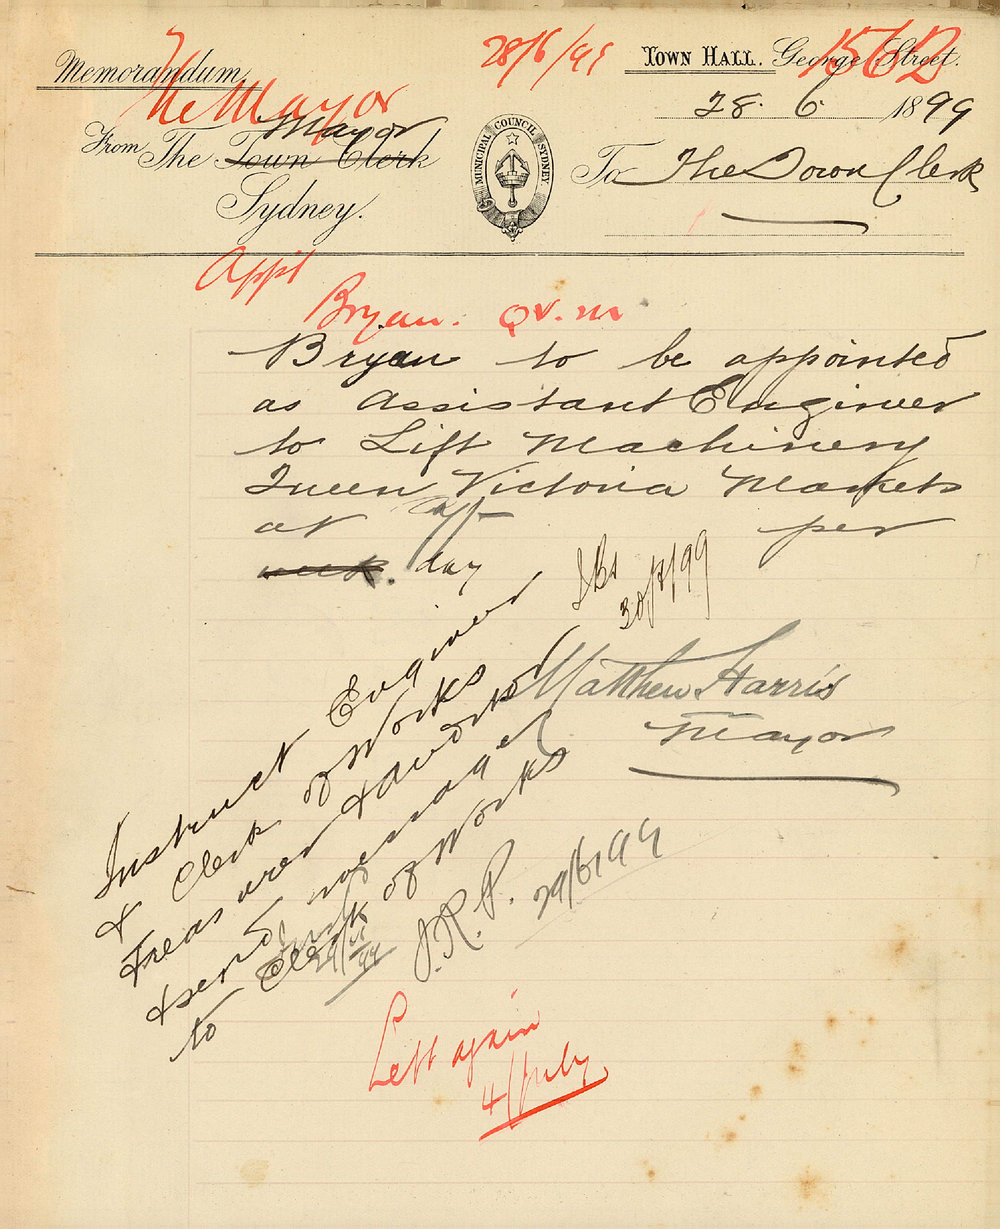 28/6/99
Town Hall. George Street.
1562
Memorandum.
The Mayor
28. 6. 1899
Mayor
From The Town Clerk
Sydney.
MUNICIPAL COUNCIL SYDNEY
To The Town Clerk
Appt
Bryan. QV.M
Bryan to be appointed
as Assistant Engineer
to Lift Machinery
Queen Victoria Markets
at 9/- per
week. day
30/6/99
Matthew Harris
Mayor
Instruct Engineer
& Clerk of Works
Treasurer &
& send messenger
to Clerk of Works
J.R.P. 29/6/99
29/6/99
Left again
4/July